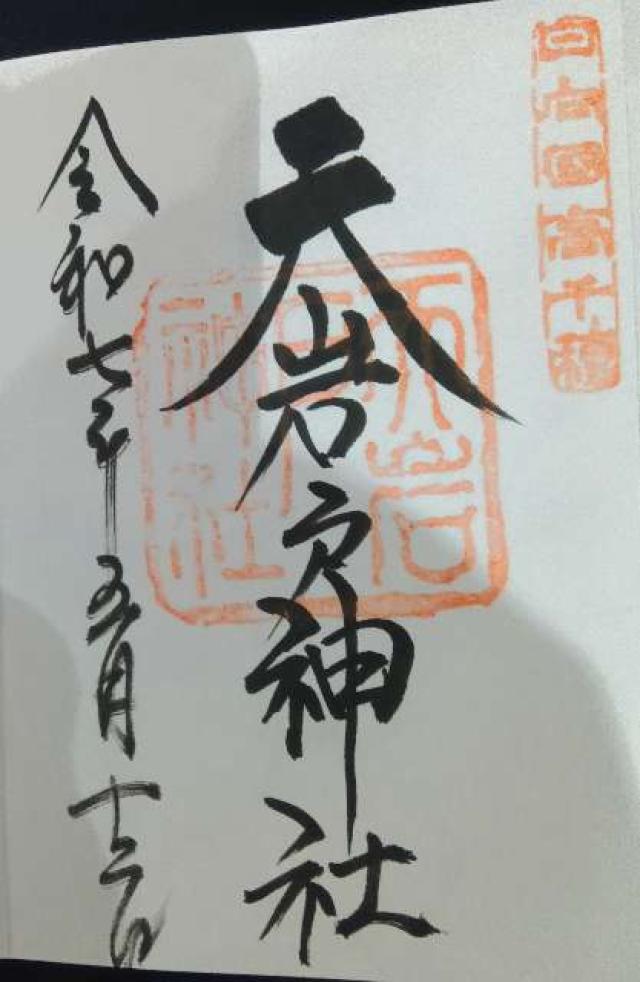 日向國高千穂
天岩戸神社
天岩戸神社
令和七年五月十二日